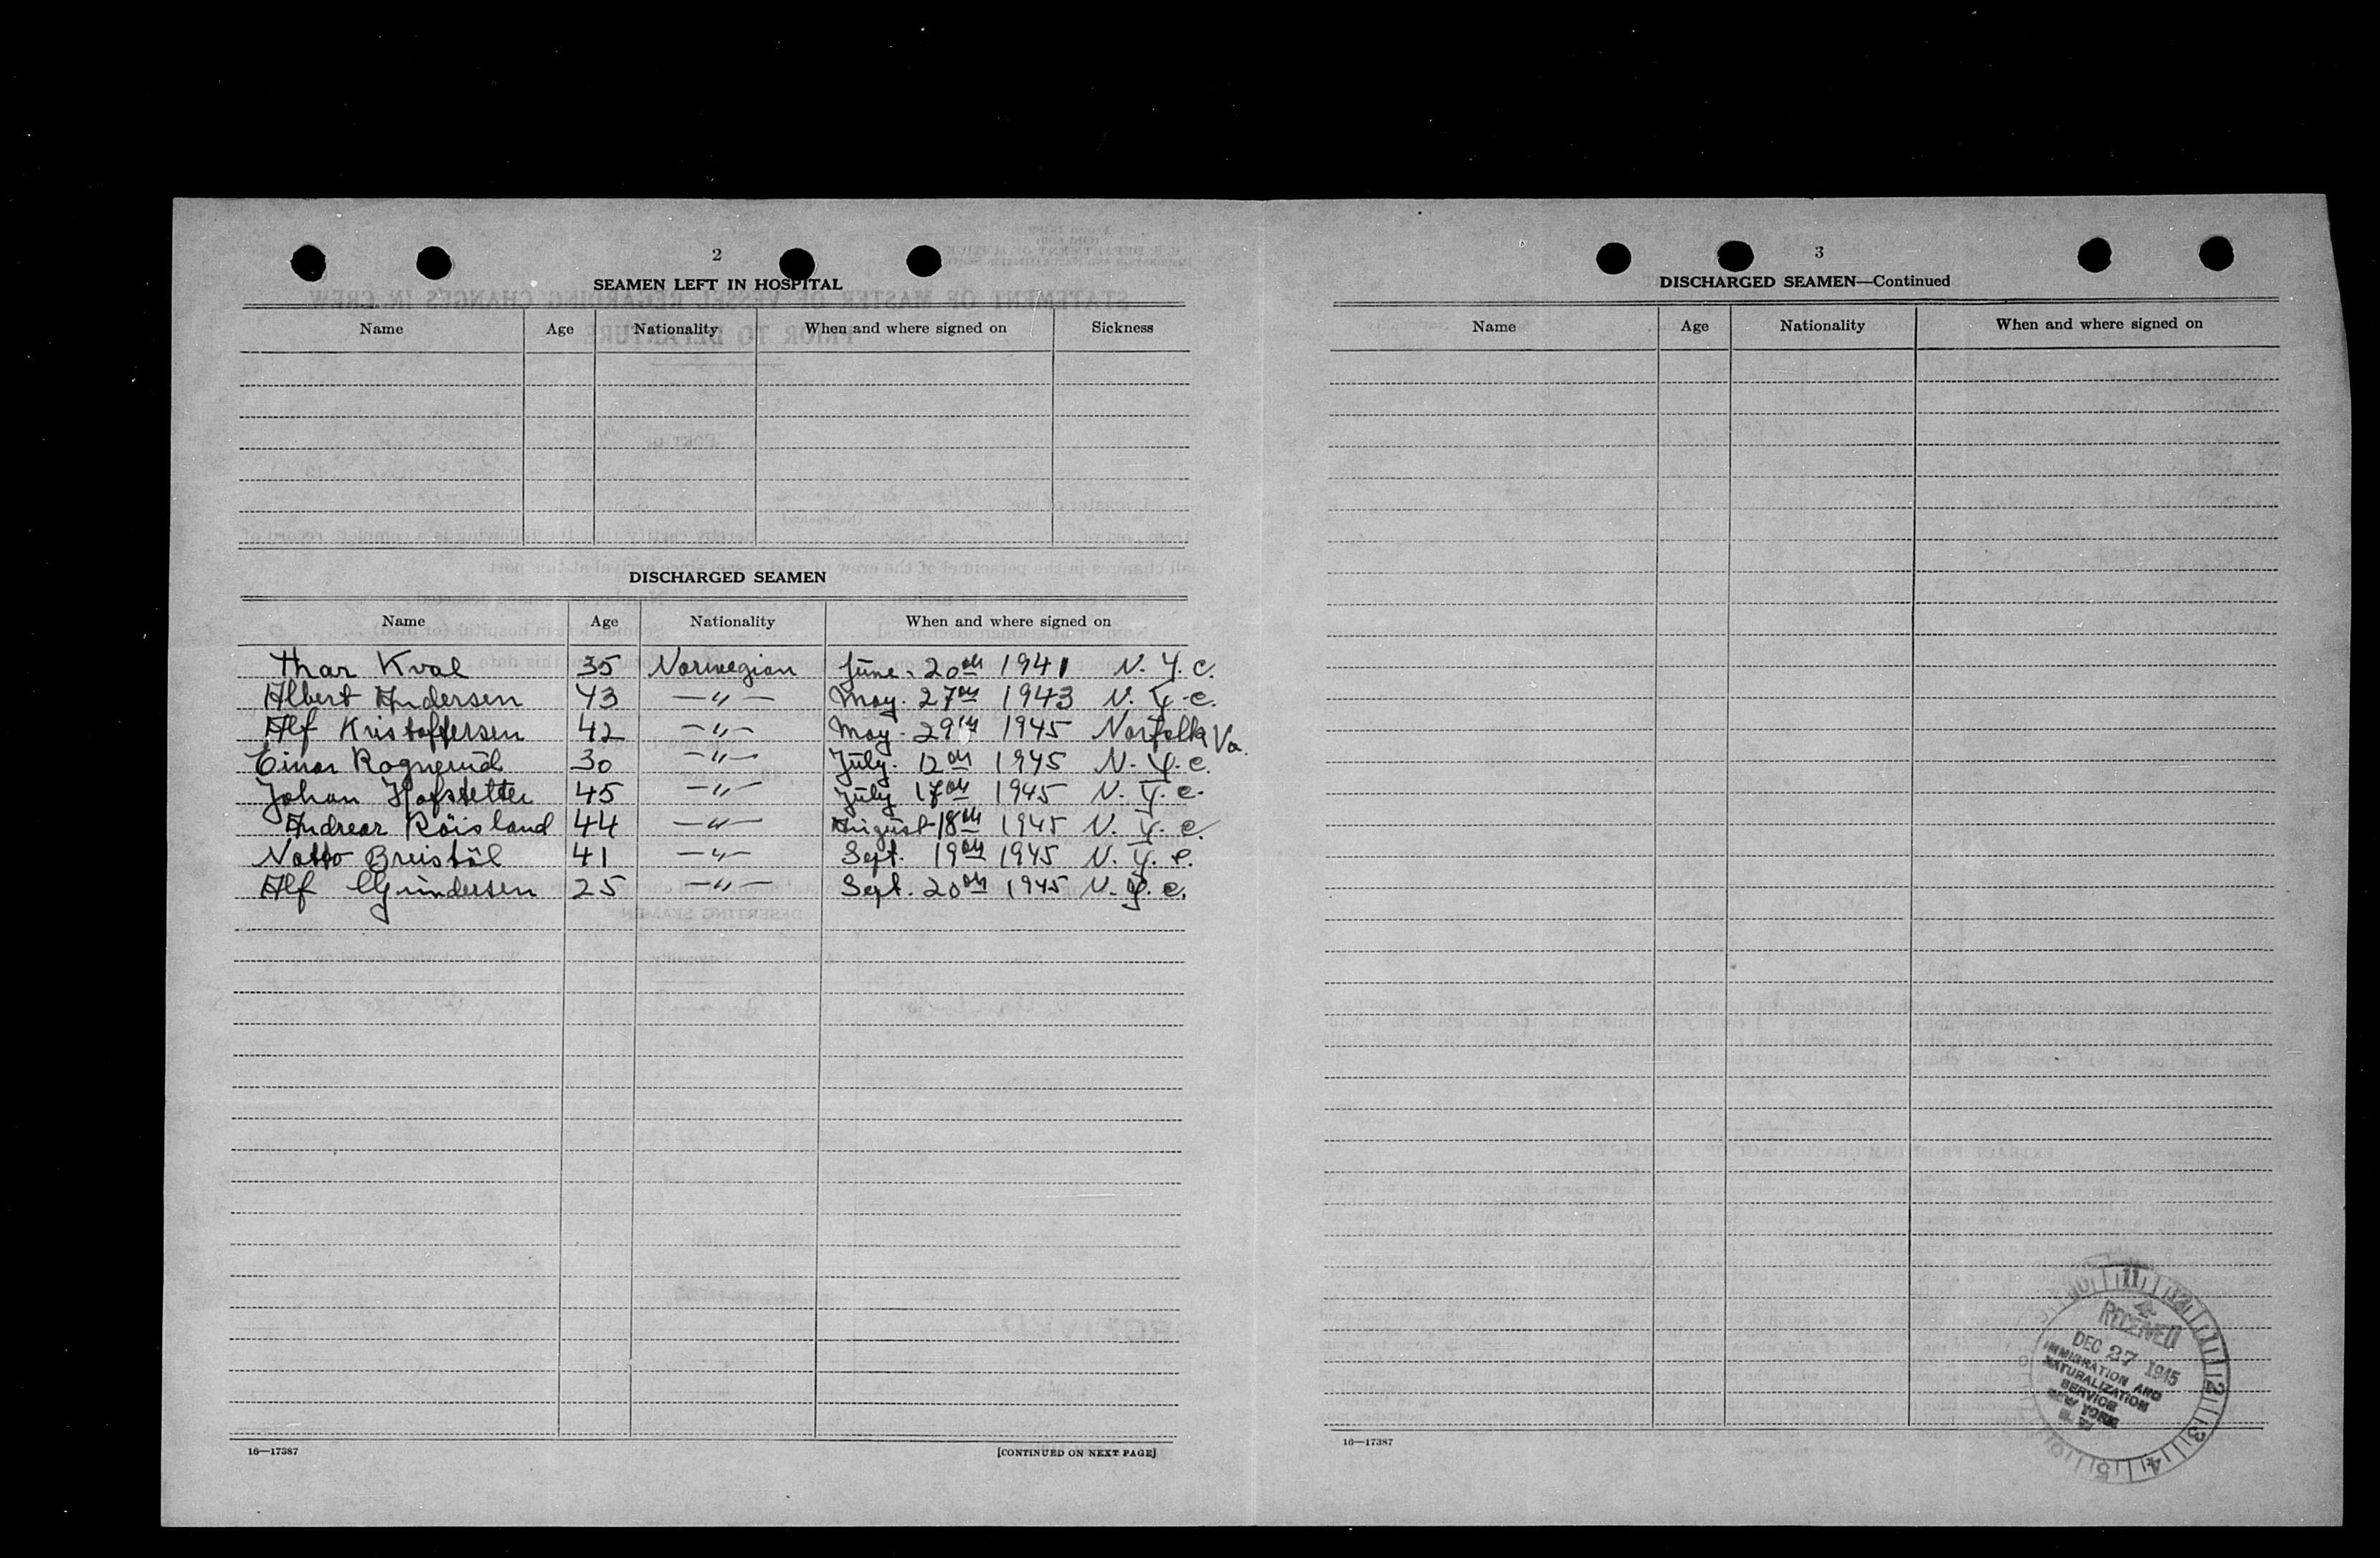 2
SEAMEN LEFT IN HOSPITAL
Name Age Nationality When and where signed on Sickness
DISCHARGED SEAMEN
Name Age Nationality When and where signed on
Thar Kval 35 Norwegian June. 20th 1941 N. Y. C.
Albert Andersen 43 —〃— May. 27th 1943 N. Y. C.
Alf Kristoffersen 42 —〃— May. 29th 1945 Norfolk Va.
Einar Rognerud 30 —〃— July. 12th 1945 N. Y. C.
Johan Hofstetter 45 —〃— July 17th 1945 N. Y. C.
Andreas Röisland 44 —〃— August 18th 1945 N. Y. C.
41 —〃— Sept. 19th 1945 N. Y. C.
Alf Gundersen 25 —〃— Sept. 20th 1945 N. Y. C.
16—17387 [CONTINUED ON NEXT PAGE]
3
DISCHARGED SEAMEN—Continued
Name Age Nationality When and where signed on
RECEIVED
DEC 27 1945
IMMIGRATION AND
NATURALIZATION
SERVICE
NEW YORK
N. Y.
16—17387